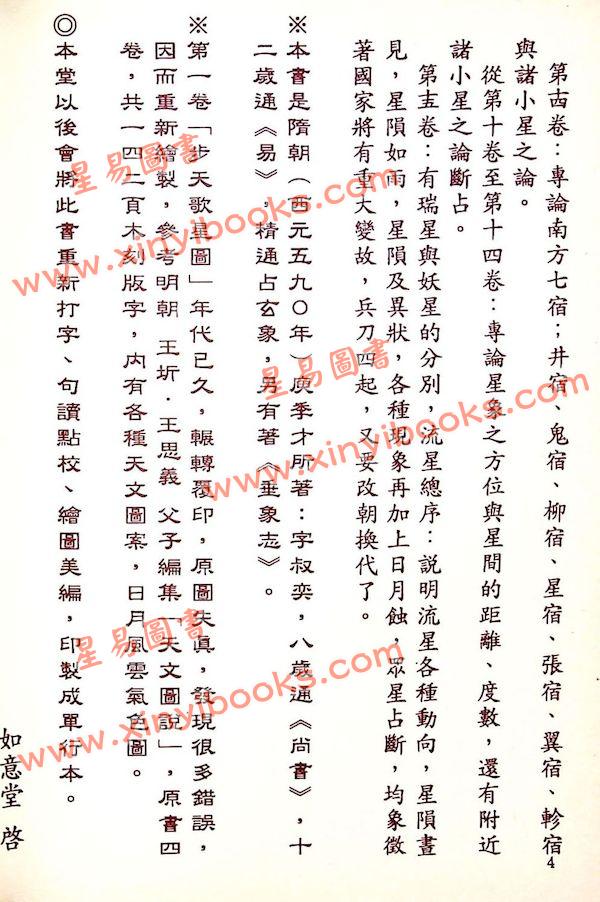 第十四卷：專論南方七宿；井宿、鬼宿、柳宿、星宿、張宿、翼宿、軫宿
與諸小星之論。
從第十卷至第十四卷：專論星象之方位與星間的距離、度數，還有附近
諸小星之論斷占。
第十五卷：有瑞星與妖星的分別，流星總序：說明流星各種動向，星隕晝
見，星隕如雨，星隕及異狀，各種現象再加上日月蝕，眾星占斷，均象徵
著國家將有重大變故，兵刀四起，又要改朝換代了。
※本書是隋朝（西元五九〇年）庾季才所著：字叔奕，八歲通《尚書》，十
二歲通《易》，精通占玄象，另有著《垂象志》。
※第一卷「步天歌星圖」年代已久，輾轉覆印，原圖失真，發現很多錯誤，
因而重新繪製，參考明朝 王圻．王思義 父子編集「天文圖說」，原書四
卷，共一四二頁木刻版字，內有各種天文圖案，日月風雲氣色圖。
◎本堂以後會將此書重新打字、句讀點校、繪圖美編，印製成單行本。
如意堂 啓
4
星易圖書
www.xinyibooks.com
星易圖書
www.xinyibooks.com
星易圖書
www.xinyibooks.com